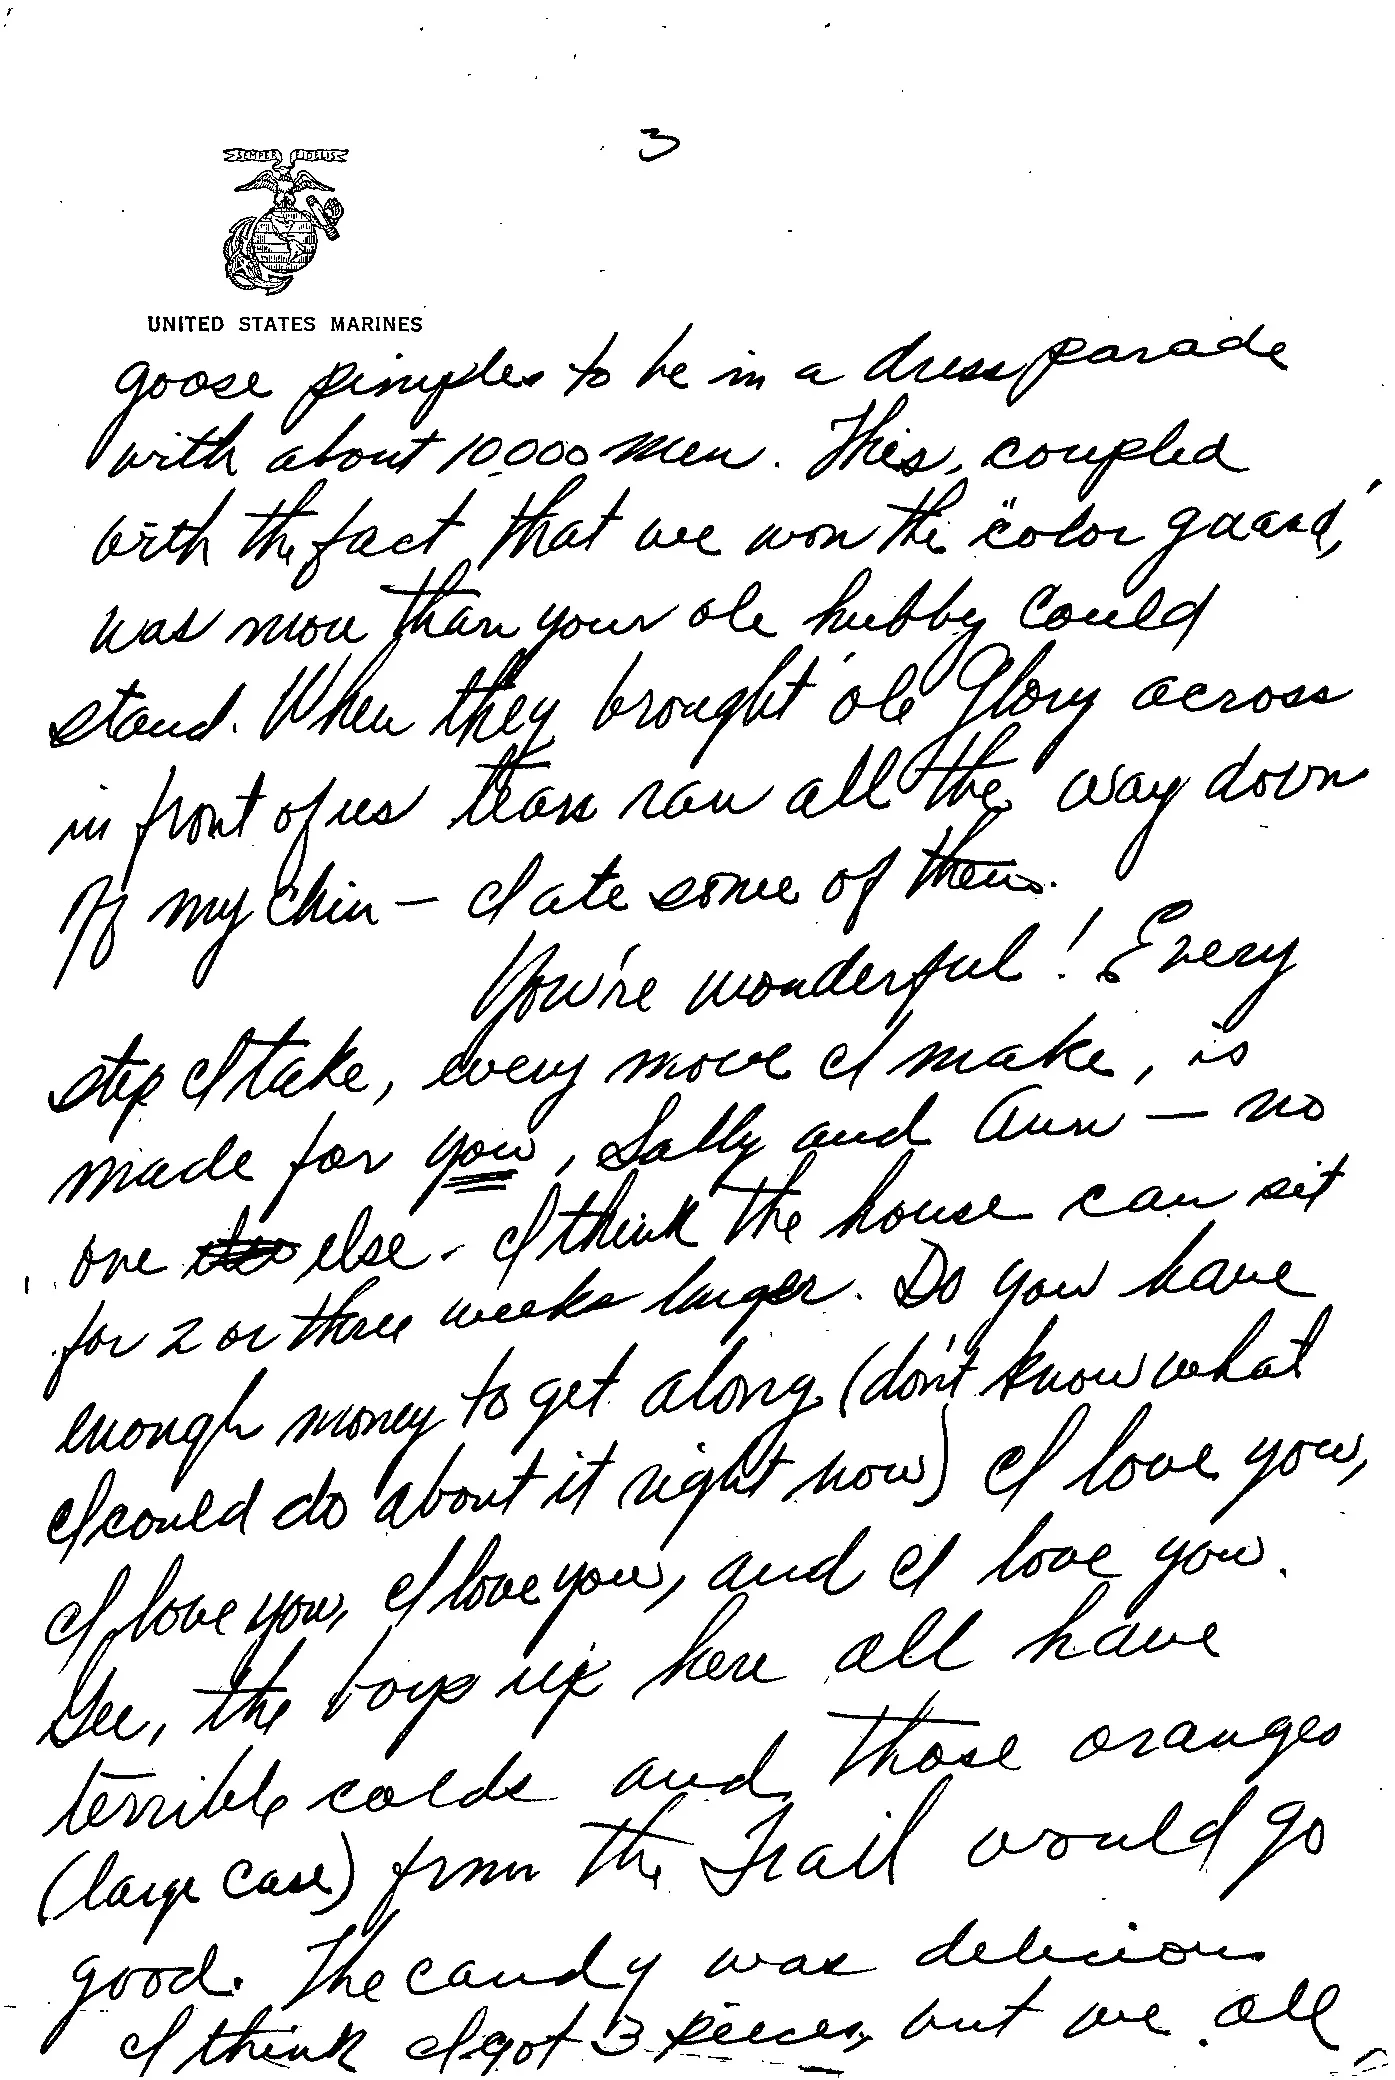 3
SEMPER FIDELIS
UNITED STATES MARINES
goose pimples to be in a dress parade
with about 10,000 men. This, coupled
with the fact that we won the "color guard,"
was more than your ole hubby could
stand. When they brought ole Glory across
in front of us tears ran all the way down
off my chin — I ate some of them.
You're wonderful! Every
step I take, every move I make, is
made for you, Sally and Ann — no
one else - I think the house can sit
for 2 or three weeks longer. Do you have
enough money to get along (don't know what
I could do about it right now) I love you,
I love you, I love you, and I love you.
Gee, the boys up here all have
terrible colds and those oranges
(large case) from the Trail would go
good. The candy was delicious
I think I got 3 pieces, but we all